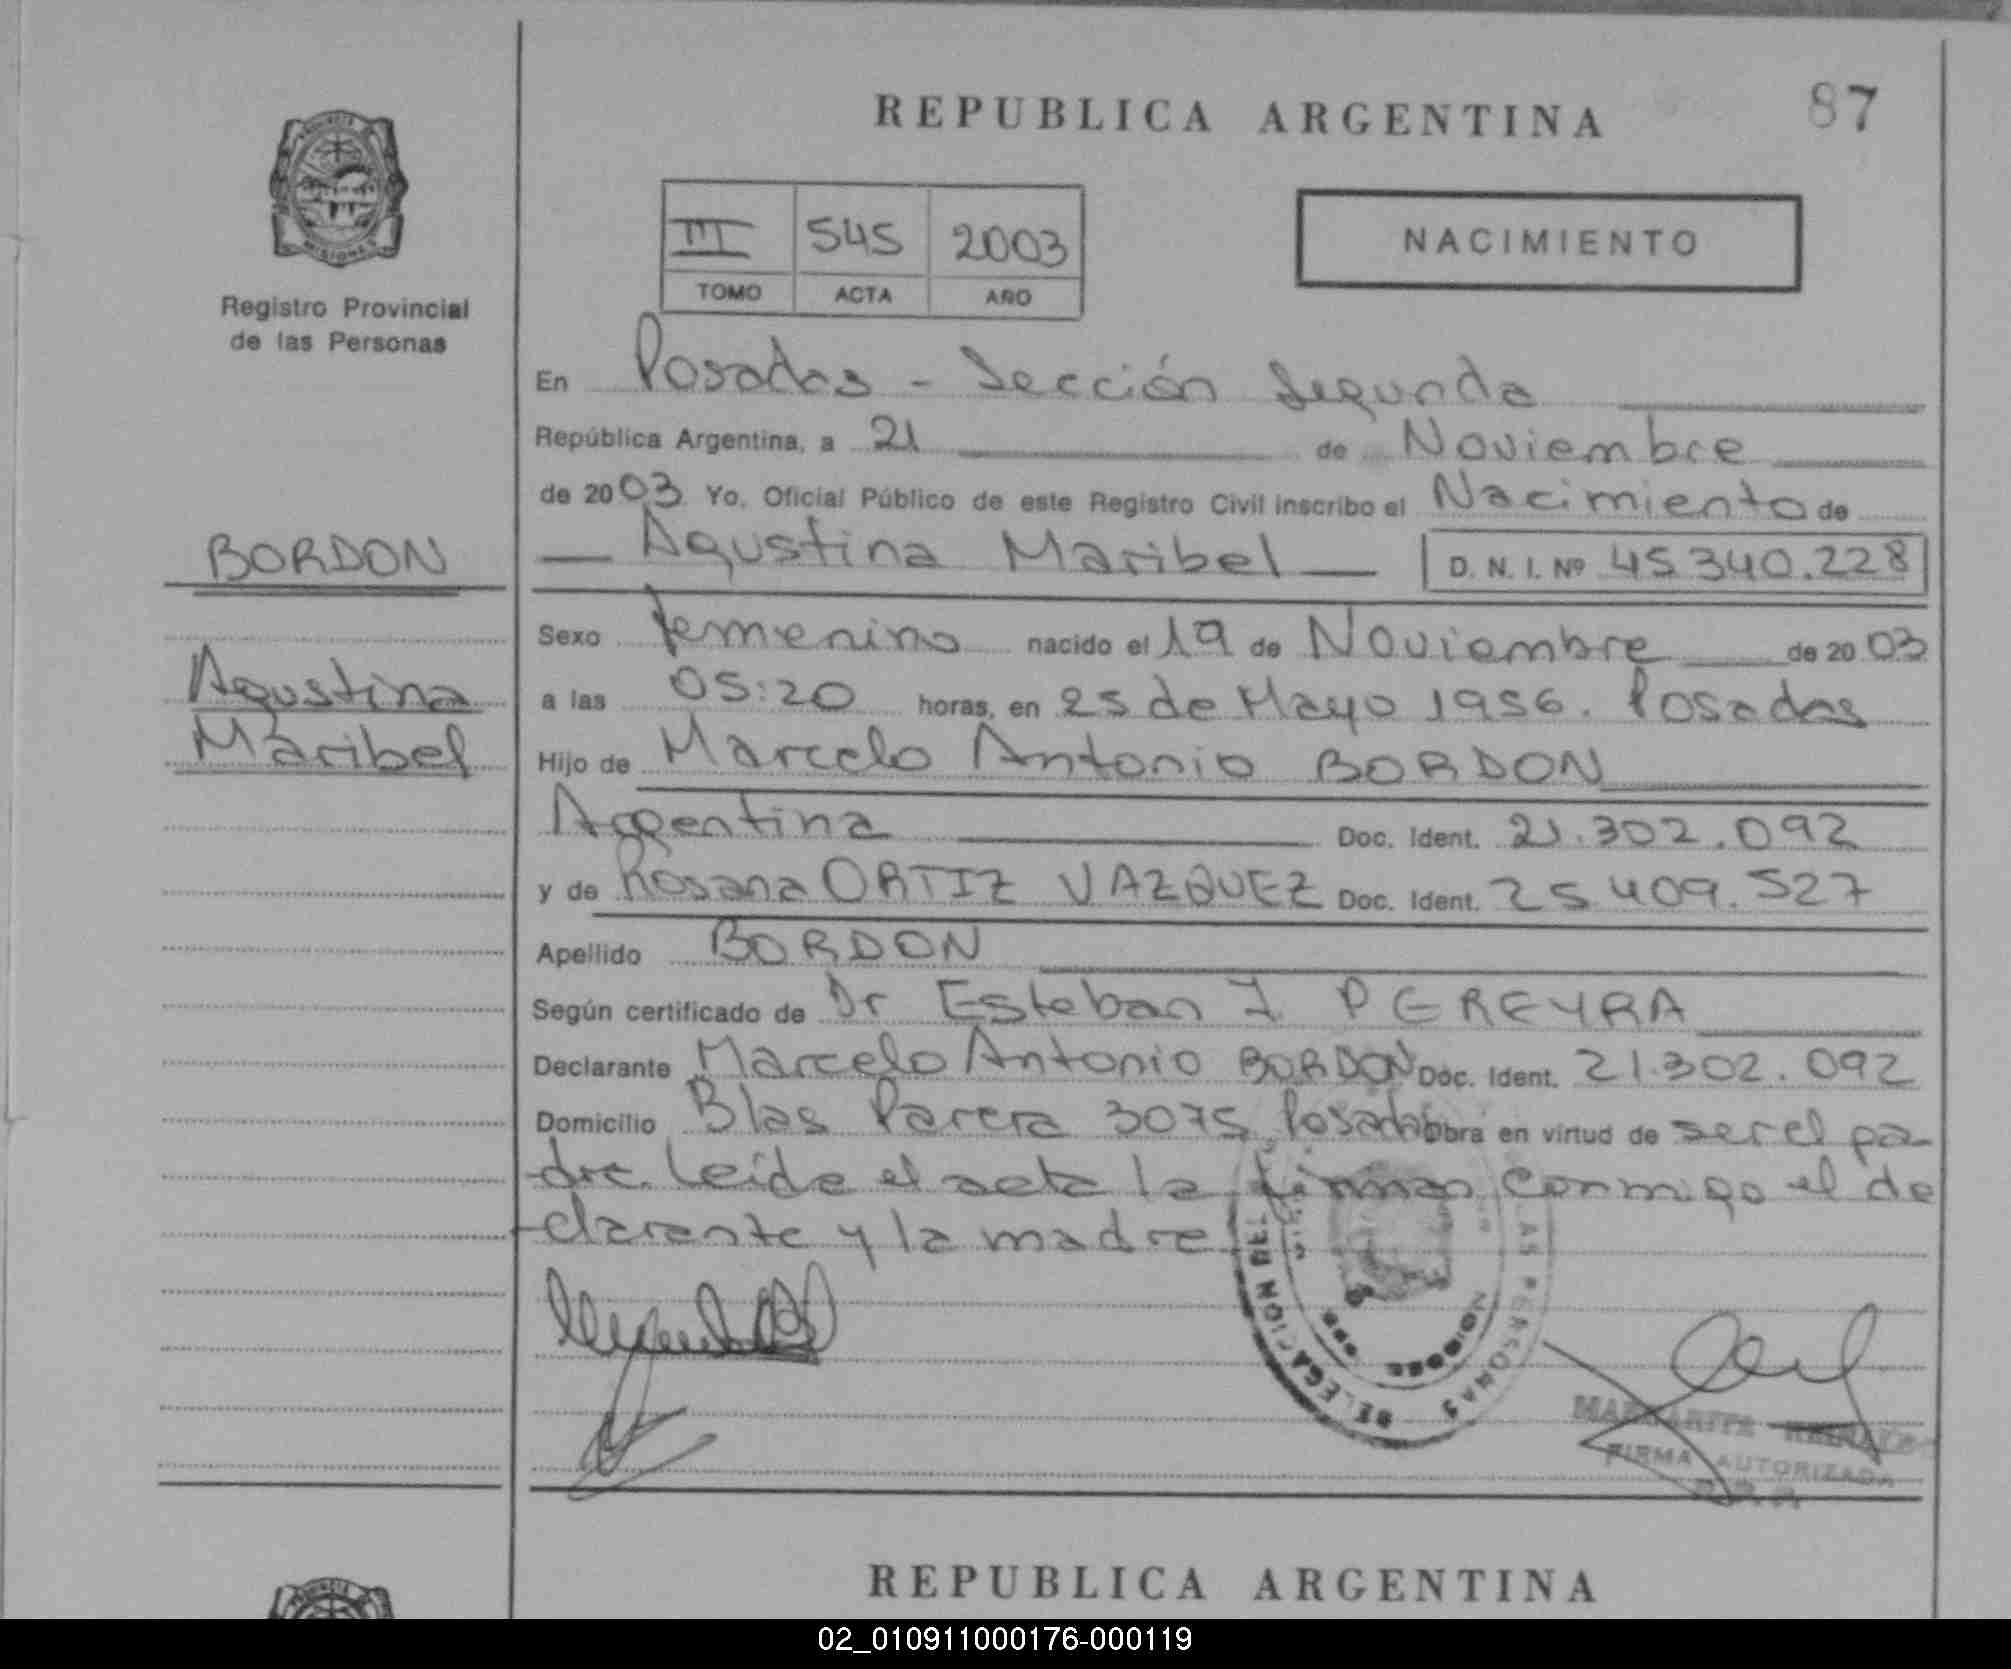 REPUBLICA ARGENTINA
87
PROVINCIA
MISIONES
Registro Provincial
de las Personas
III 545 2003
TOMO ACTA AÑO
NACIMIENTO
En Posadas - Sección Segunda
República Argentina, a 21 de Noviembre
de 2003 Yo, Oficial Público de este Registro Civil inscribo el Nacimiento de
BORDON
Agustina Maribel D. N. I. Nº 45 340.228
Sexo femenino nacido el 19 de Noviembre de 20 03
Agustina
Maribel
a las 05:20 horas, en 25 de Mayo 1956. Posadas
Hijo de Marcelo Antonio BORDON
Argentina Doc. Ident. 21.302.092
y de Rosana ORTIZ VAZQUEZ Doc. Ident. 25.409.527
Apellido BORDON
Según certificado de Dr Esteban J. PEREYRA
Declarante Marcelo Antonio BORDON Doc. Ident. 21.302.092
Domicilio Blas Parera 3075, Posadas Obra en virtud de ser el pa-
dre. Leída el acta la firman conmigo el de
clarante y la madre
DELEGACION DEL LAS PERSONAS
FIRMA AUTORIZADA
REPUBLICA ARGENTINA
PROVINCIA
02_010911000176-000119